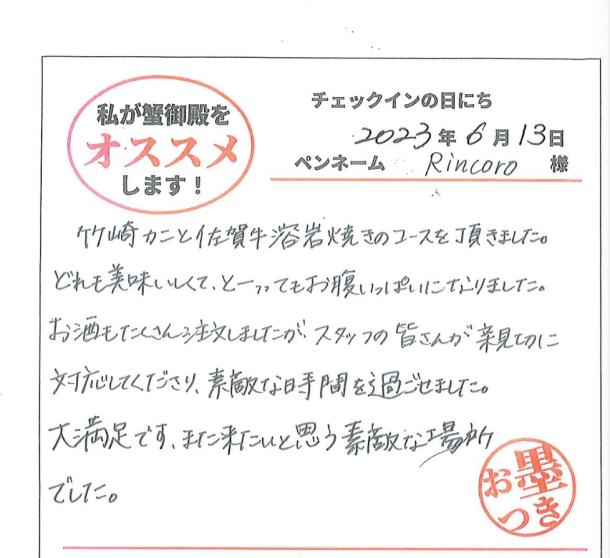 私が蟹御殿を
オススメ
します！
チェックインの日にち
2023年6月13日
ペンネーム Rincoro 様
竹崎カニと佐賀牛溶岩焼きのコースを頂きました。
どれも美味いしくて、とーってもお腹いっぱいになりました。
お酒もたくさん注文しましたが、スタッフの皆さんが親切に
対応してくださり、素敵な時間を過ごせました。
大満足です、また来たいと思う素敵な場所
でした。
お墨
つき